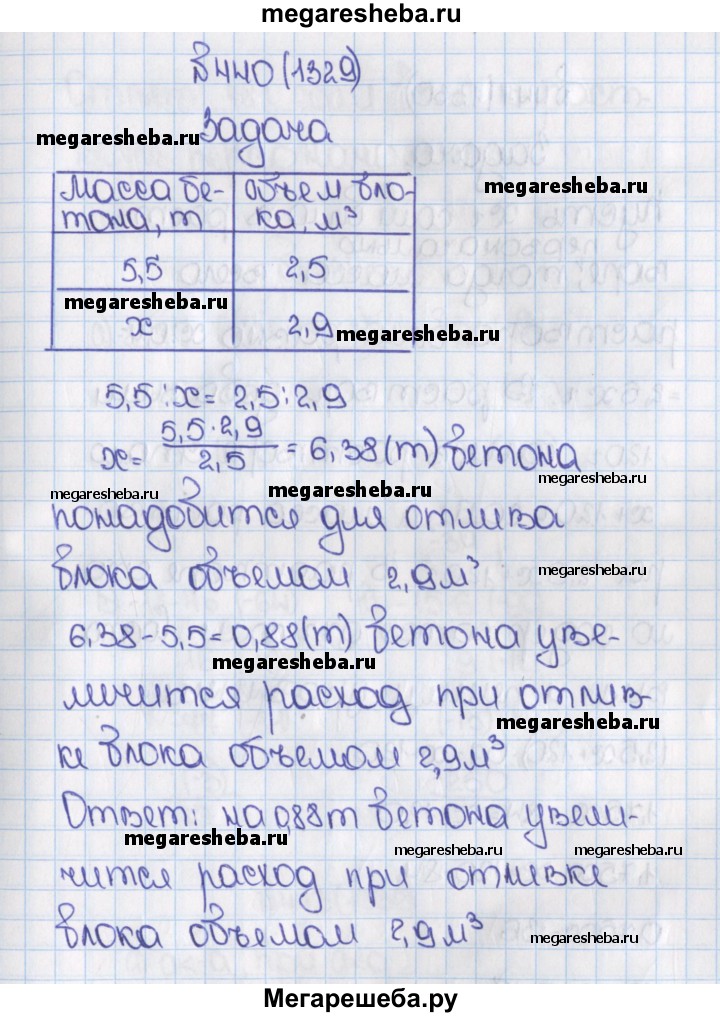 megaresheba.ru
№440 (1329)
megaresheba.ru
Задача
Масса бе- Объем бло-
тона, т ка, м³
megaresheba.ru
5,5 2,5
megaresheba.ru
х 2,9
megaresheba.ru
5,5:х = 2,5:2,9
х= 5,5·2,9 / 2,5 = 6,38(т) бетона
megaresheba.ru
megaresheba.ru megaresheba.ru
понадобится для отлива
блока объемом 2,9м³
megaresheba.ru
6,38-5,5=0,88(т) бетона уве-
megaresheba.ru
личится расход при отлив-
megaresheba.ru
ке блока объемом 2,9м³
Ответ: на 0,88т бетона увели-
megaresheba.ru megaresheba.ru megaresheba.ru
чится расход при отливке
блока объемом 2,9м³
megaresheba.ru
Мегарешеба.ру